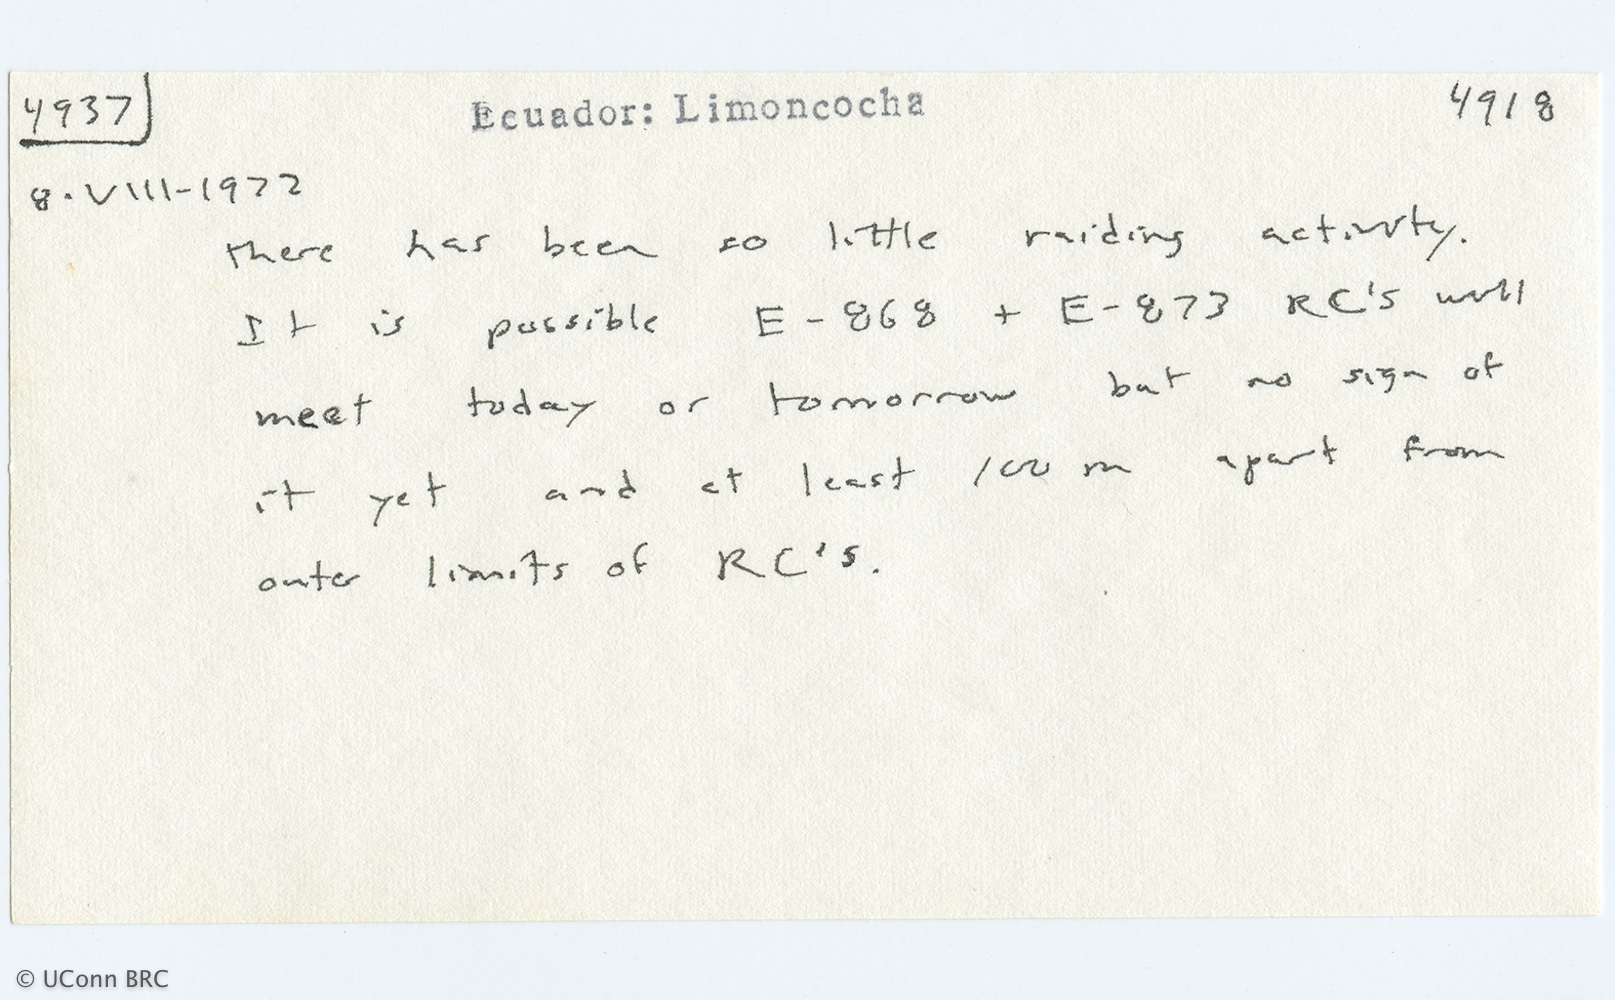 4937 Ecuador: Limoncocha 4918
8·VIII-1972
there has been so little raiding activity.
It is possible E-868 + E-873 RC's will
meet today or tomorrow but no sign of
it yet and at least 100 m apart from
outer limits of RC's.
© UConn BRC